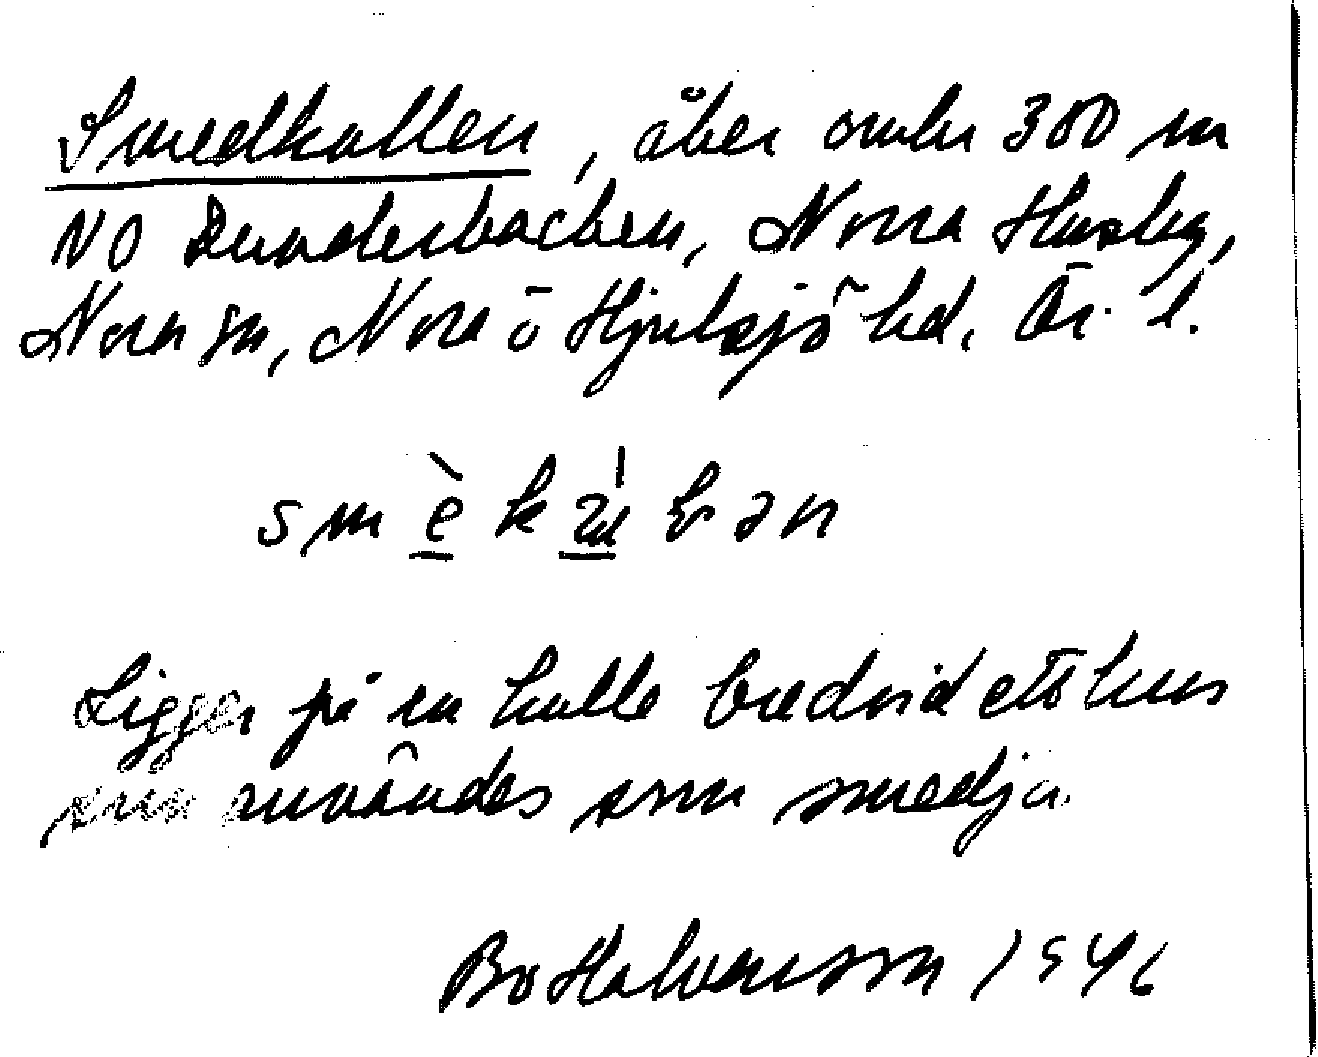 Smedkallen, åker omkr 300 m
NO Dunderbacken, Norra Husby,
Nora sn, Nora ō Hjulsjō hd, Ör. l.
Ligger på en kulle bredvid ett hus
som användes som smedja.
Bo Halvarsson 1946